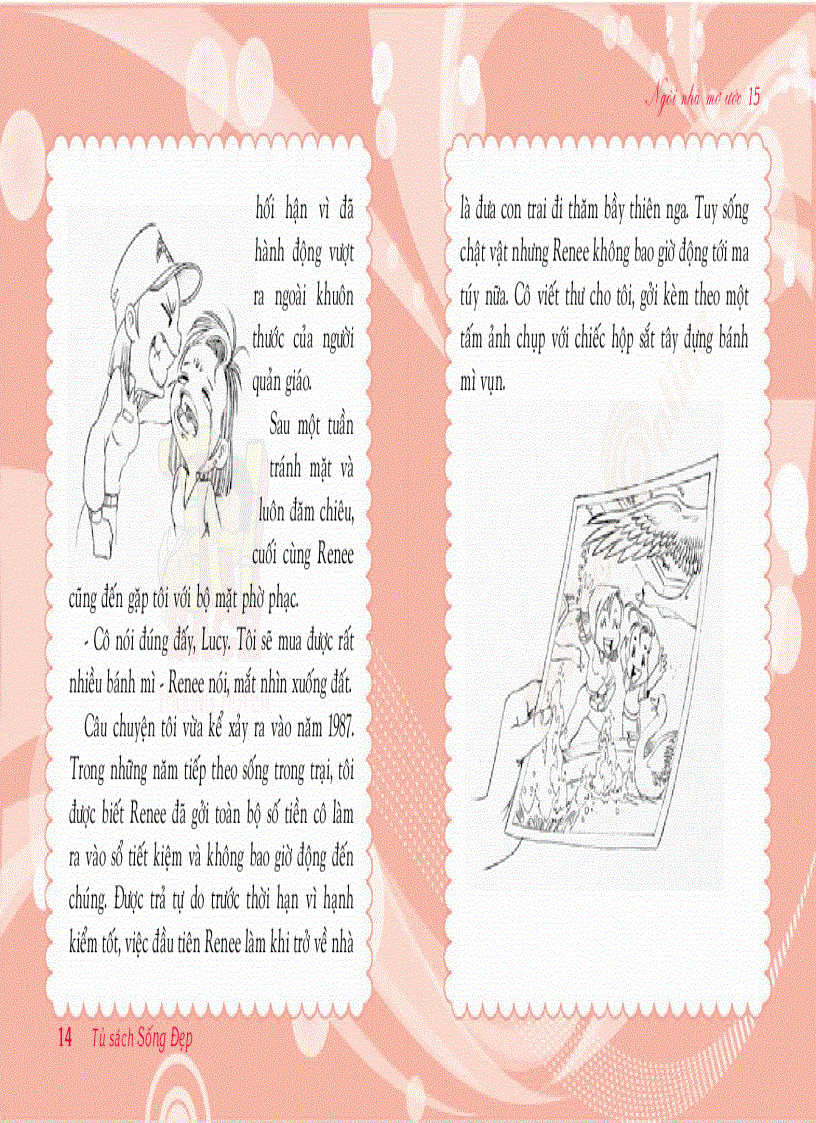 hối hận vì đã
hành động vượt
ra ngoài khuôn
thước của người
quản giáo.
Sau một tuần
tránh mặt và
luôn đăm chiêu,
cuối cùng Renee
cũng đến gặp tôi với bộ mặt phờ phạc.
- Cô nói đúng đấy, Lucy. Tôi sẽ mua được rất
nhiều bánh mì - Renee nói, mắt nhìn xuống đất.
Câu chuyện tôi vừa kể xảy ra vào năm 1987.
Trong những năm tiếp theo sống trong trại, tôi
được biết Renee đã gởi toàn bộ số tiền cô làm
ra vào sổ tiết kiệm và không bao giờ động đến
chúng. Được trả tự do trước thời hạn vì hạnh
kiểm tốt, việc đầu tiên Renee làm khi trở về nhà
14 Tủ sách Sống Đẹp
Ngôi nhà mơ ước 15
là đưa con trai đi thăm bầy thiên nga. Tuy sống
chật vật nhưng Renee không bao giờ động tới ma
túy nữa. Cô viết thư cho tôi, gởi kèm theo một
tấm ảnh chụp với chiếc hộp sắt tây đựng bánh
mì vụn.